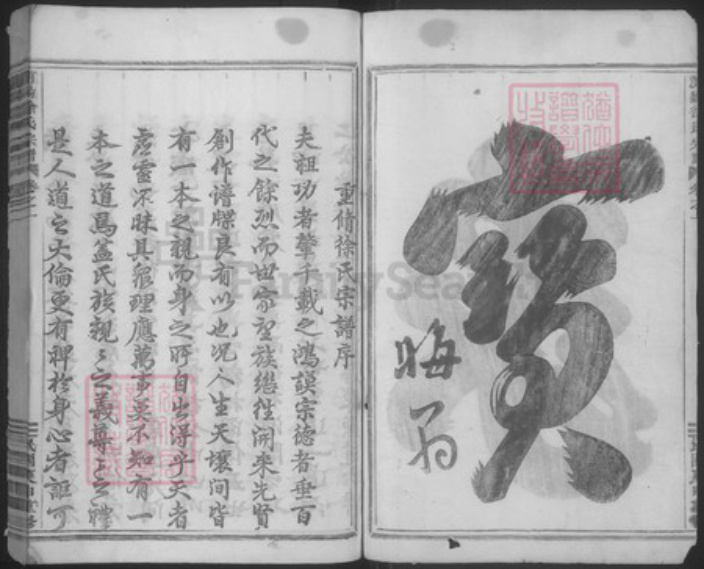 寶
晦翁
重脩徐氏宗譜序
夫祖功者肇千載之鴻謨宗德者垂百
代之餘烈而世家望族繼往開來先賢
創作譜牒良有以也况人生天壤间皆
有一本之親而身之所自出得乎天者
虛靈不昧具衆理應萬事莫不知有一
本之道焉盖氏族親〻之義尊〻之禮
是人道之大倫更有裨於身心者詎可
FamilySearch